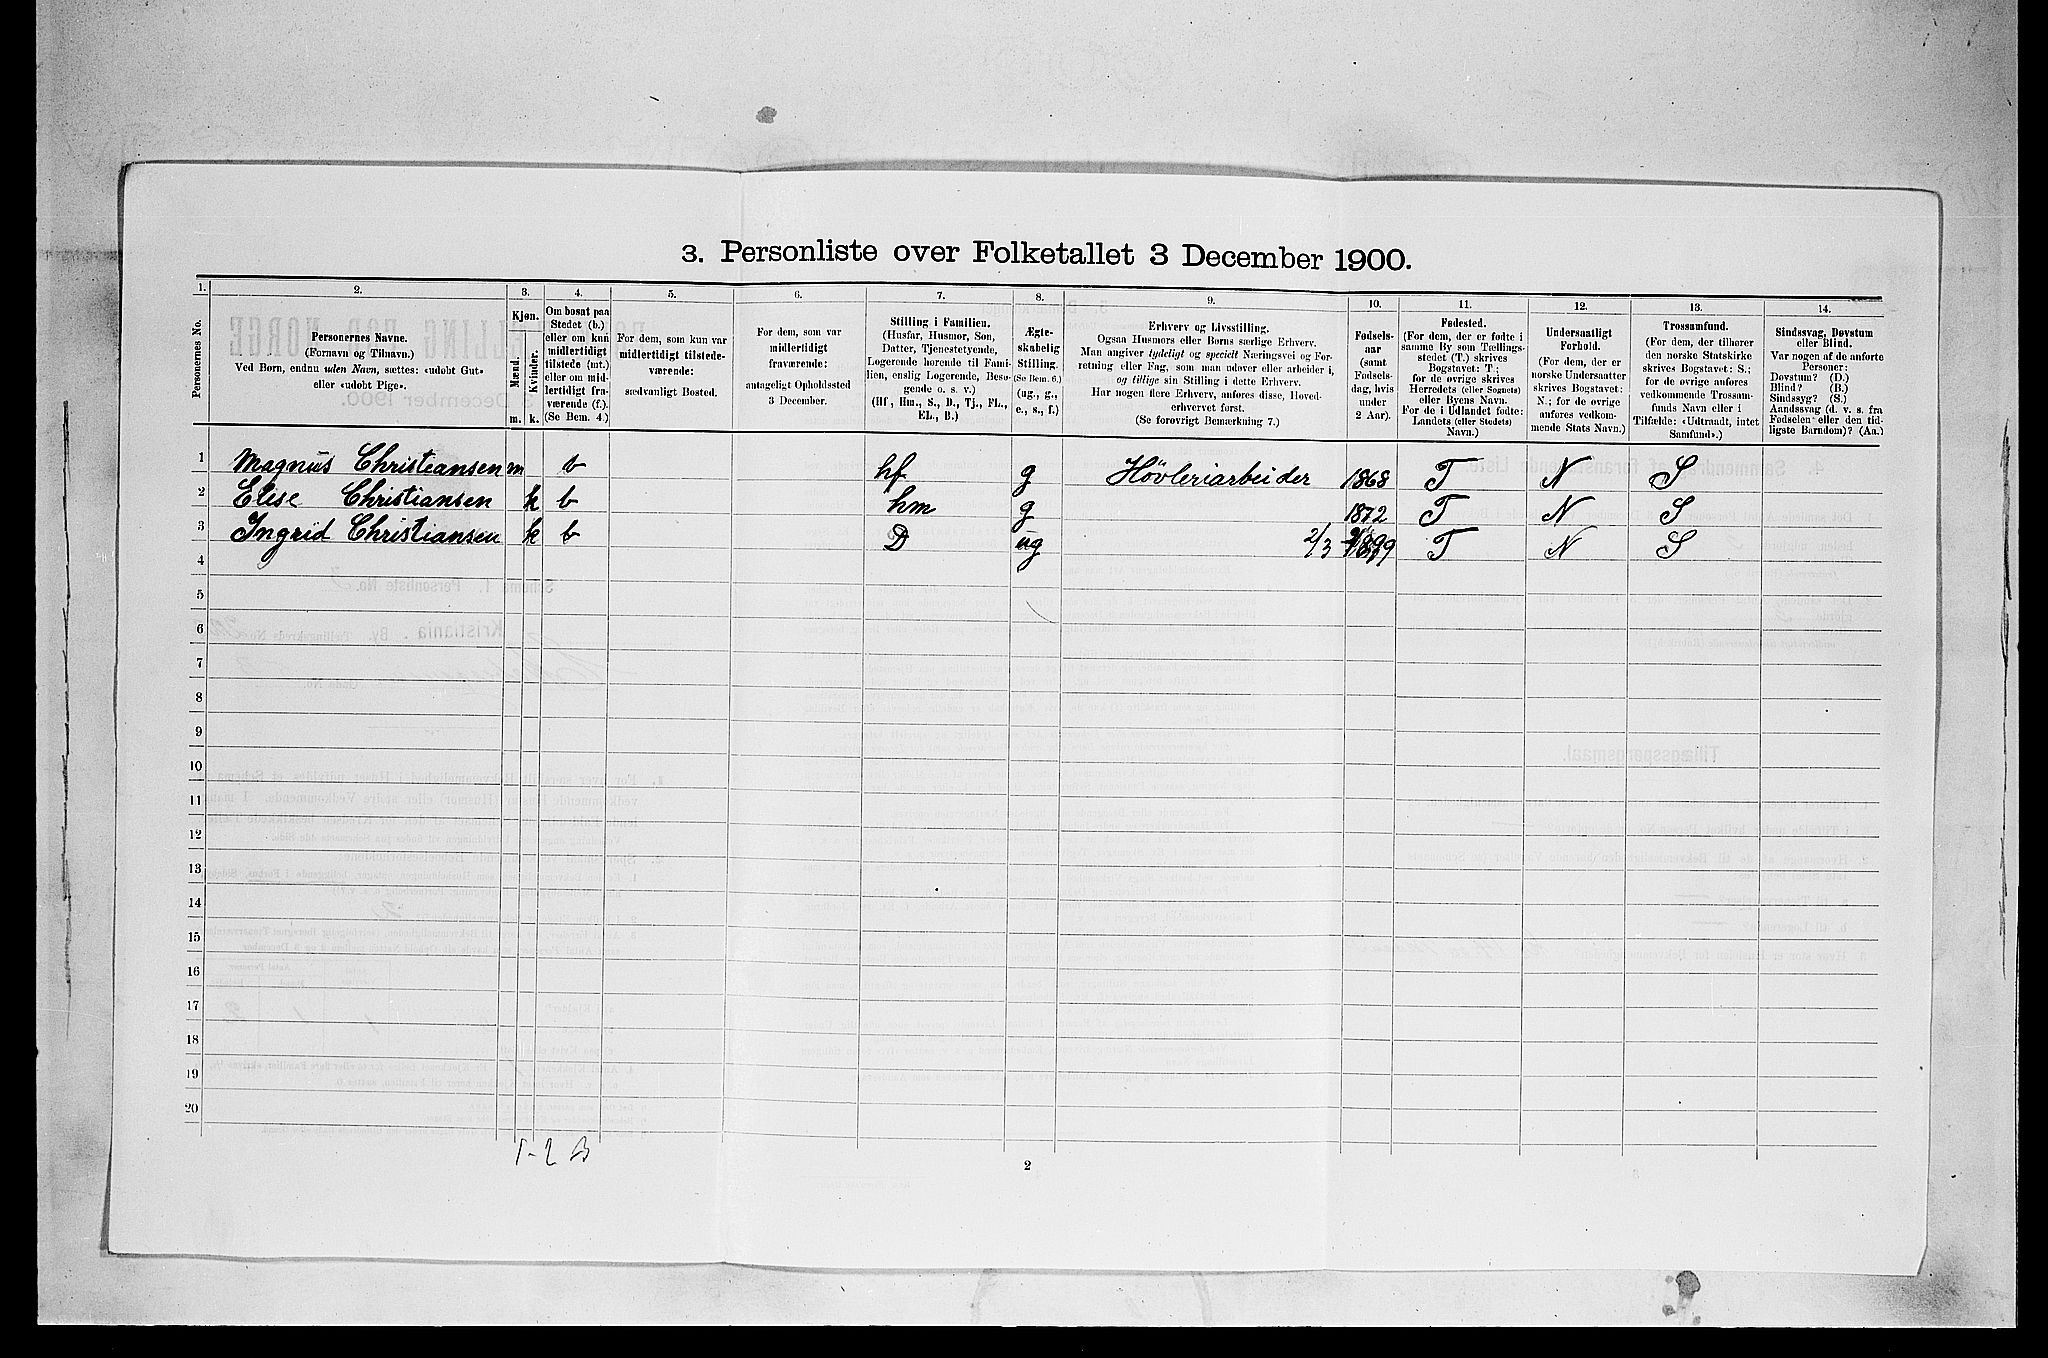 3. Personliste over Folketallet 3 December 1900.
1. 2. 3. 4. 5. 6. 7. 8. 9. 10. 11. 12. 13. 14.
Personernes No.
Personernes Navne.
(Fornavn og Tilnavn.)
Ved Børn, endnu uden Navn, sættes: «udøbt Gut»
eller «udøbt Pige».
Kjøn.
Mænd. Kvinder.
m. k.
Om bosat paa
Stedet (b.)
eller om kun
midlertidigt
tilstede (mt.)
eller om mid-
lertidigt fra-
værende (f.).
(Se Bem. 4.)
For dem, som kun var
midlertidigt tilstede-
værende:
sædvanligt Bosted.
For dem, som var
midlertidigt
fraværende:
antageligt Opholdssted
3 December.
Stilling i Familien.
(Husfar, Husmor, Søn,
Datter, Tjenestetyende,
Logerende hørende til Fami-
lien, enslig Logerende, Besø-
gende o. s. v.)
(Hf, Hm., S., D., Tj., FL.,
EL., B.)
Ægte-
skabelig
Stilling.
(Se Bem. 6.)
(ug., g.,
e., s., f.)
Erhverv og Livsstilling.
Ogsaa Husmors eller Børns særlige Erhverv.
Man angiver tydeligt og specielt Næringsvei og For-
retning eller Fag, som man udøver eller arbeider i,
og tillige sin Stilling i dette Erhverv.
Har nogen flere Erhverv, anføres disse, Hoved-
erhvervet først.
(Se forøvrigt Bemærkning 7.)
Fødsels-
aar
(samt
Fødsels-
dag, hvis
under
2 Aar).
Fødested.
(For dem, der er fødte i
samme By som Tællings-
stedet (T.) skrives
Bogstavet: T.;
for de øvrige skrives
Herredets (eller Sognets)
eller Byens Navn.
For de i Udlandet fødte:
Landets (eller Stedets)
Navn.)
Undersaatligt
Forhold.
(For dem, der er
norske Undersaatter
skrives Bogstavet:
N.; for de øvrige
anføres vedkom-
mende Stats Navn.)
Trossamfund.
(For dem, der tilhører
den norske Statskirke
skrives Bogstavet: S.;
for de øvrige anføres
vedkommende Trossam-
funds Navn eller i
Tilfælde: «Udtraadt, intet
Samfund».)
Sindssvag, Døvstum
eller Blind.
Var nogen af de anførte
Personer:
Døvstum? (D.)
Blind? (B.)
Sindssyg? (S.)
Aandssvag (d. v. s. fra
Fødselen eller den tid-
ligste Barndom)? (Aa.)
1 Magnus Christiansen m b hf g Høvleriarbeider 1868 T N S
2 Elise Christiansen k b hm g 1872 T N S
3 Ingrid Christiansen k b D ug 2/3 1899 T N S
4
5
6
7
8
9
10
11
12
13
14
15
16
17
18
19
20
1-2 B
2